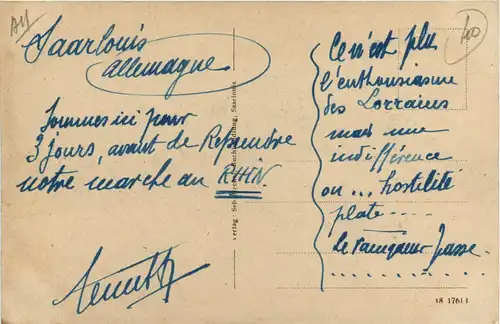 Saarlouis
Allemagne
Sommes ici pour
3 jours, avant de Reprendre
notre marche au RHIN.
Ce n'est plus
l'enthousiasme
des Lorrains
mais une
indifférence
ou... hostilité
plate....
Le vainqueur passe
..............
40
18 17611